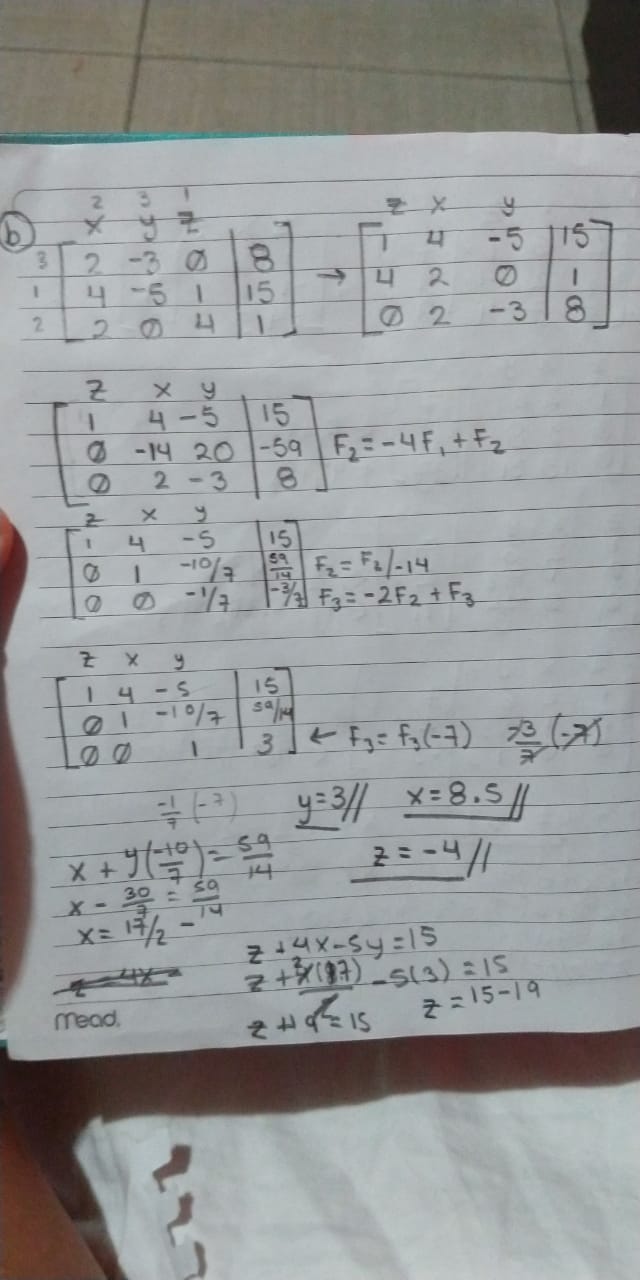 2 3 1
x y z
b)
3 [ 2 -3 0 | 8 ]
1 [ 4 -5 1 | 15 ]
2 [ 2 0 4 | 1 ]
→
z x y
[ 1 4 -5 | 15 ]
[ 4 2 0 | 1 ]
[ 0 2 -3 | 8 ]
z x y
[ 1 4 -5 | 15 ]
[ 0 -14 20 | -59 ] F₂=-4F₁+F₂
[ 0 2 -3 | 8 ]
z x y
[ 1 4 -5 | 15 ]
[ 0 1 -10/7 | 59/14 ] F₂=F₂/-14
[ 0 0 -1/7 | -3/7 ] F₃=-2F₂+F₃
z x y
[ 1 4 -5 | 15 ]
[ 0 1 -10/7 | 59/14 ]
[ 0 0 1 | 3 ] ← F₃=F₃(-7) -3/7 (-7)
-1/7 (-7) y=3// x=8.5//
x + y(-10/7) = 59/14 z=-4//
x - 30/7 = 59/14
x= 17/2 -
z+4x-5y=15
z+ (17) -5(3)=15
z+19=15 z=15-19
Mead.